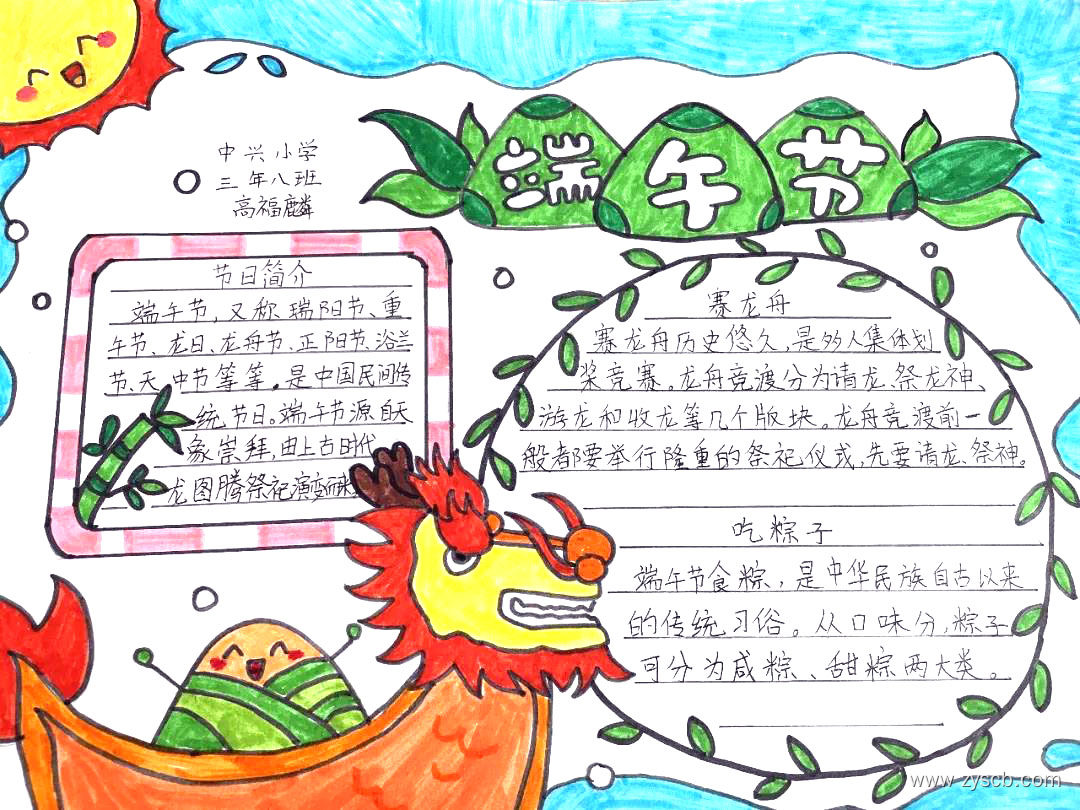 端午节
中兴小学
三年八班
高福麟
节日简介
端午节,又称瑞阳节、重
午节、龙日、龙舟节、正阳节、浴兰
节、天中节等等。是中国民间传
统节日。端午节源自天
象崇拜,由上古时代
龙图腾祭祀演变而来
赛龙舟
赛龙舟历史悠久,是多人集体划
桨竞赛。龙舟竞渡分为请龙、祭龙神、
游龙和收龙等几个版块。龙舟竞渡前一
般都要举行隆重的祭祀仪式,先要请龙、祭神。
吃粽子
端午节食粽,是中华民族自古以来
的传统习俗。从口味分,粽子
可分为咸粽、甜粽两大类。
www.zyscb.com